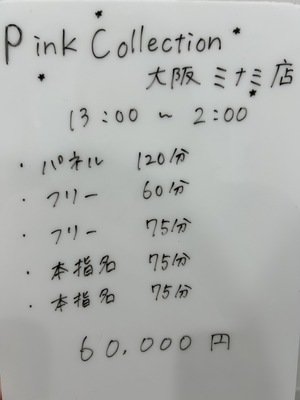 Pink Collection
大阪ミナミ店
13:00～2:00
・パネル 120分
・フリー 60分
・フリー 75分
・本指名 75分
・本指名 75分
60,000円